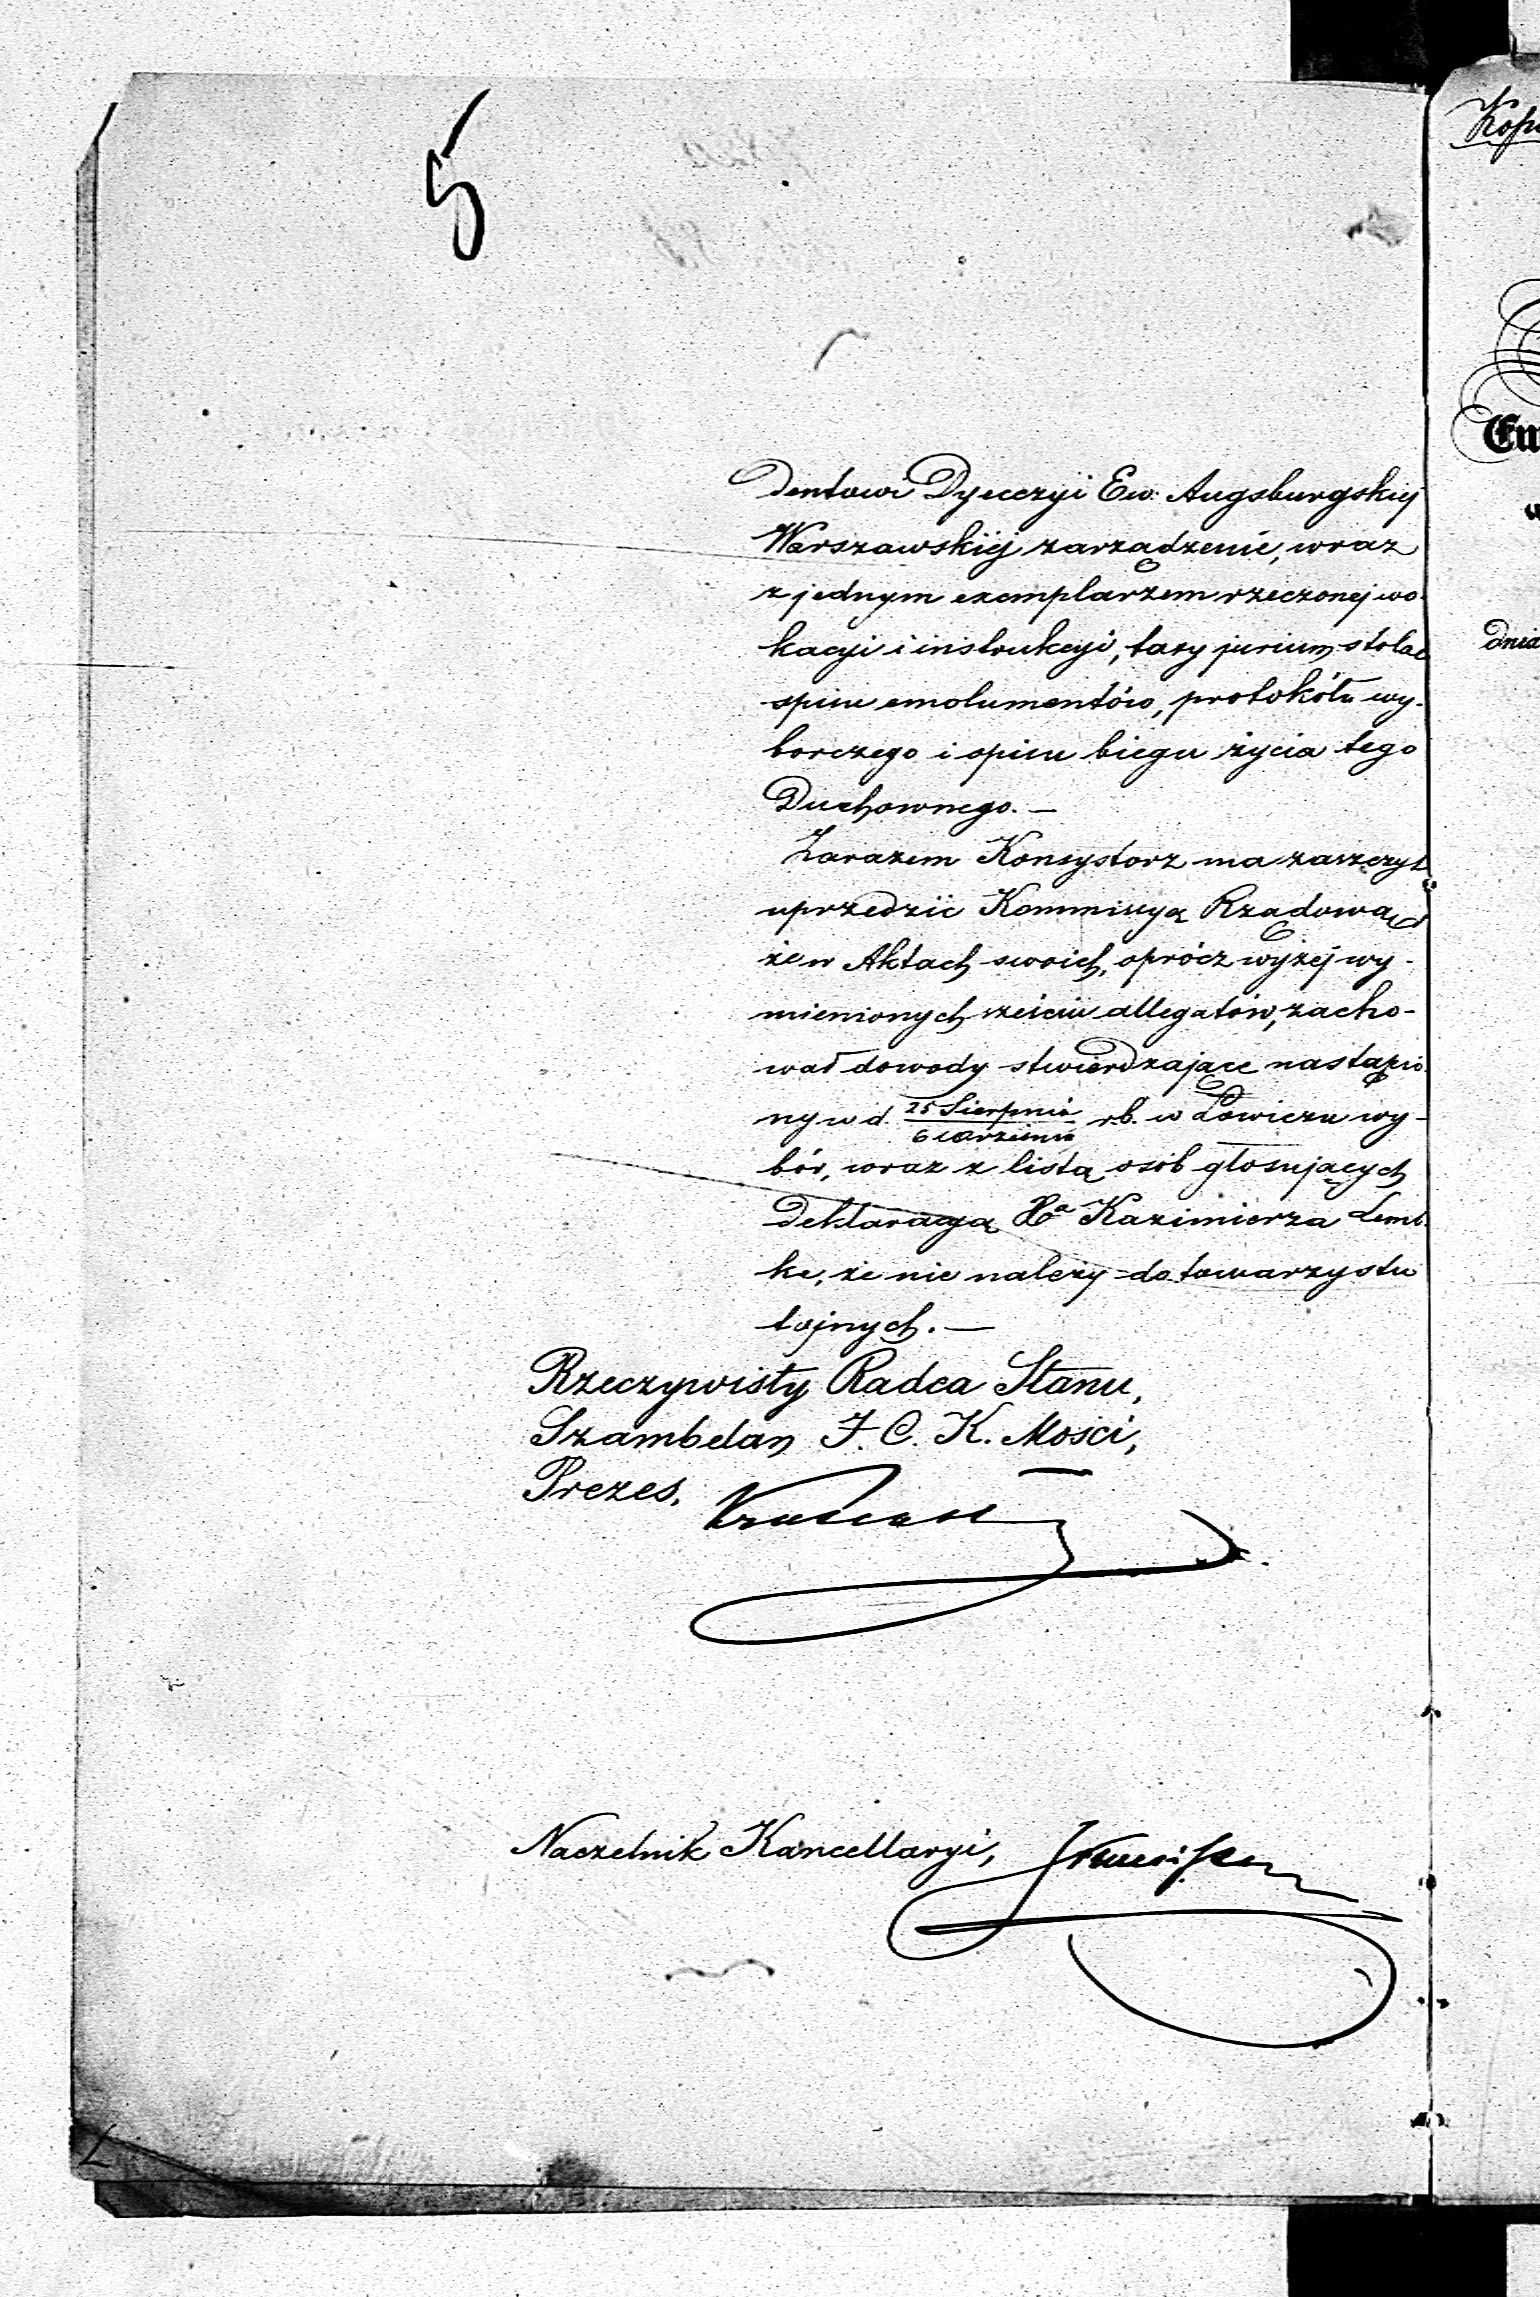 5
dentowi Dyecezyi Ew: Augsburgskiej
Warszawskiej zarządzenie, wraz
z jednym exemplarzem rzeczonej wo-
kacyi i instrukcyi, taxy jurium stolae
spisu emolumentów, protokółu wy-
borczego i opisu biegu życia tego
Duchownego. —
Zarazem Konsystorz ma zaszczyt
uprzedzić Kommissyą Rządową
że w Aktach swoich, oprócz wyżej wy-
mienionych sześciu allegatów, zacho-
wał dowody stwierdzające nastąpio-
ny w d. 25 Sierpnia / 6 Września r.b. w Łowiczu wy-
bór, wraz z listą osób głosujących
deklaracyą Xa Kazimierza Lemb-
ke, że nie należy do towarzystw
tajnych. —
Rzeczywisty Radca Stanu,
Szambelan J. C. K. Mości,
Prezes,
Naczelnik Kancellaryi,
Kop
Eu
dnia